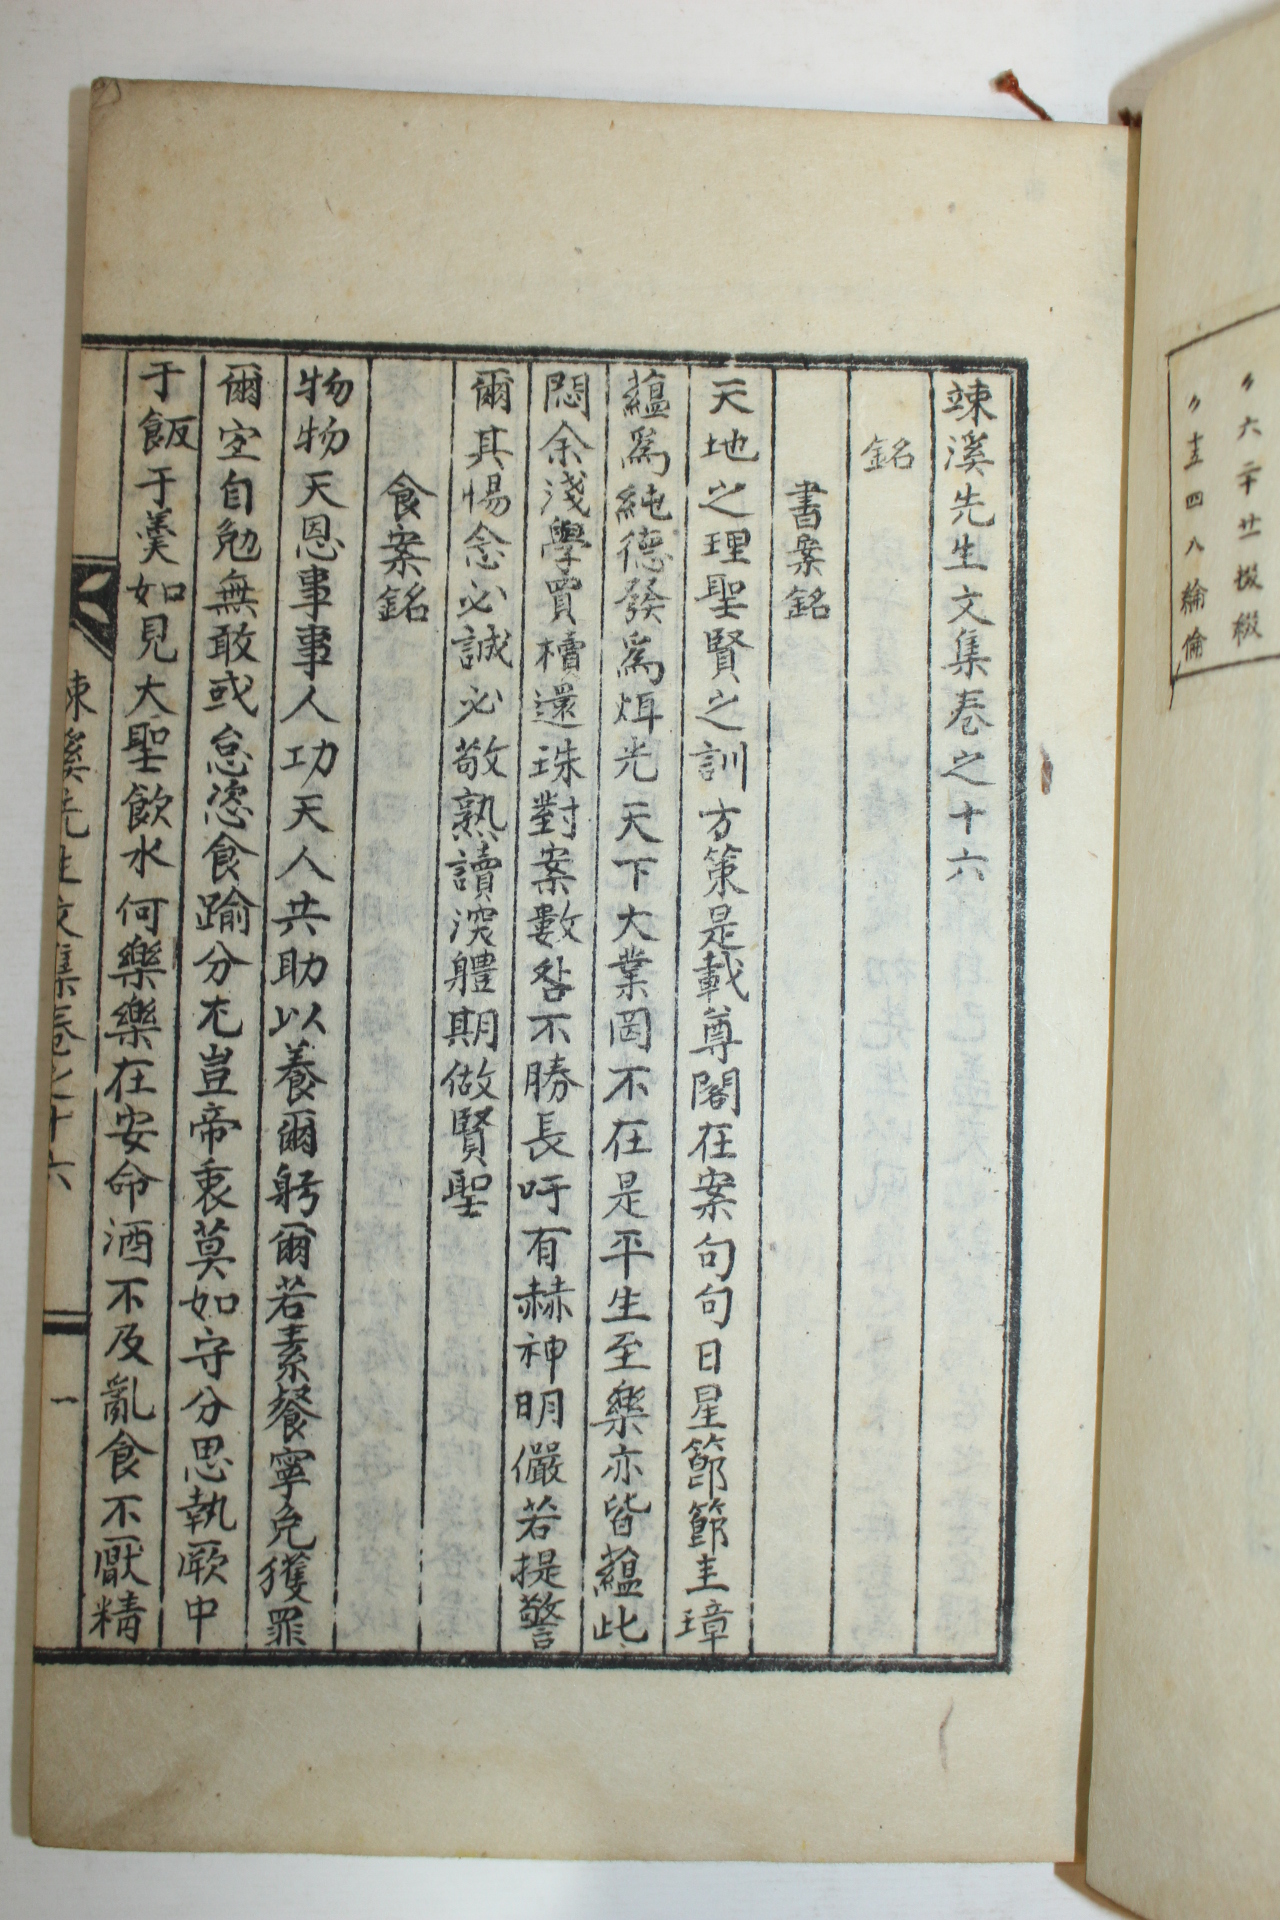 〃六二十廿掇棳
〃十五四八綸倫
竦溪先生文集卷之十六
銘
書案銘
天地之理聖賢之訓方策是載尊閣在案句句日星節節圭璋
蘊爲純德發爲炳光天下大業罔不在是平生至樂亦皆蘊此
悶余淺學買櫝還珠對案數咎不勝長吁有赫神明儼若提警
爾其惕念必誠必敬熟讀深體期做賢聖
食案銘
物物天恩事事人功天人共助以養爾躬爾若素餐寧免獲罪
爾宜自勉無敢或怠恣食踰分尤豈帝衷莫如守分思執厥中
于飯于羹如見大聖飮水何樂樂在安命酒不及亂食不厭精
竦溪先生文集卷之十六
一